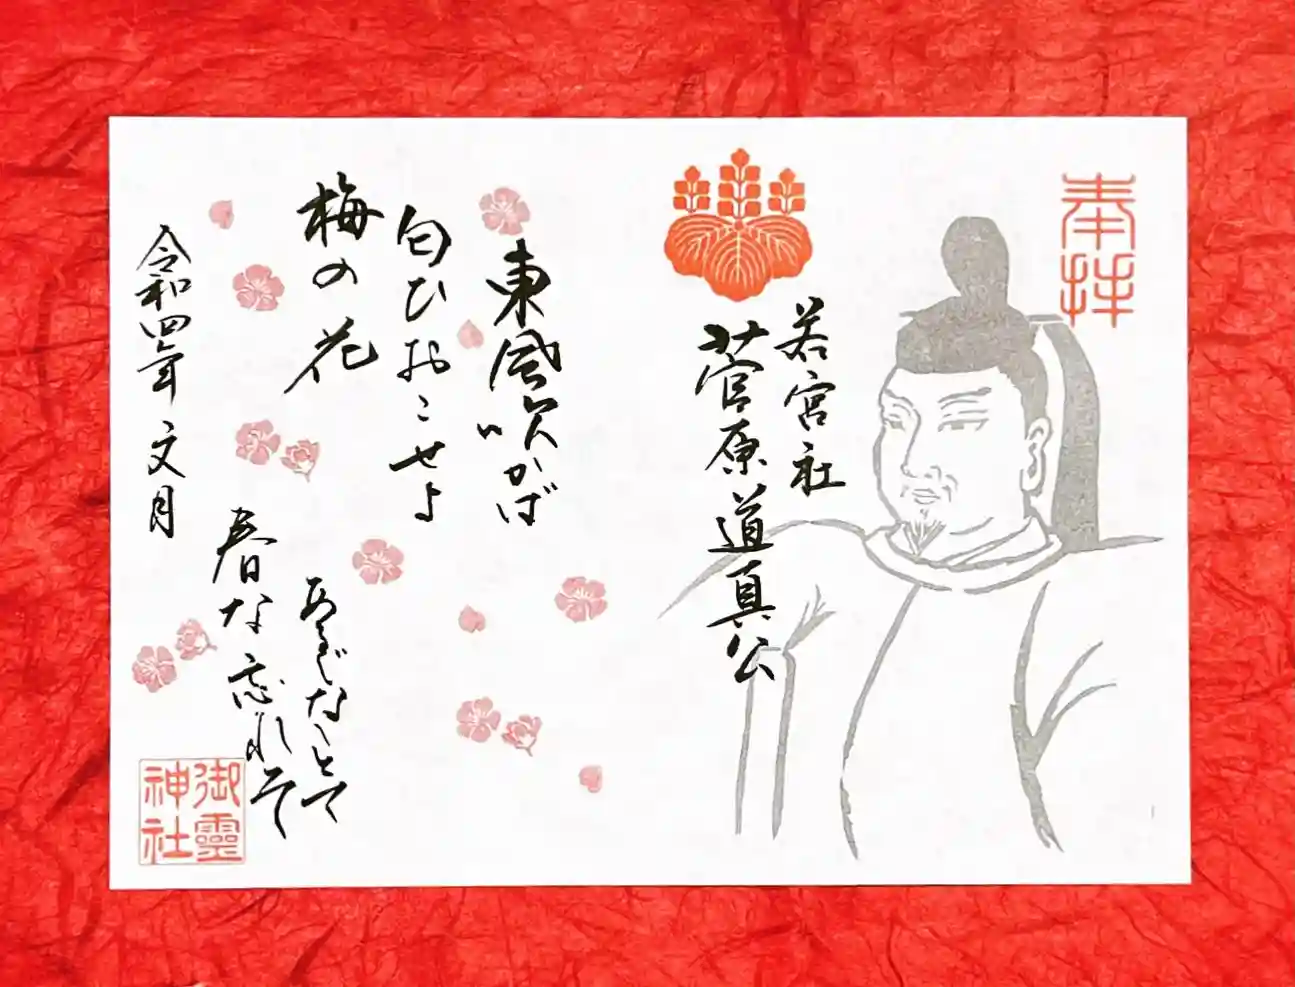 奉拝
若宮社
菅原道真公
東風吹かば
匂ひおこせよ
梅の花
あるじなしとて
春な忘れそ
令和四年 文月
御靈
神社